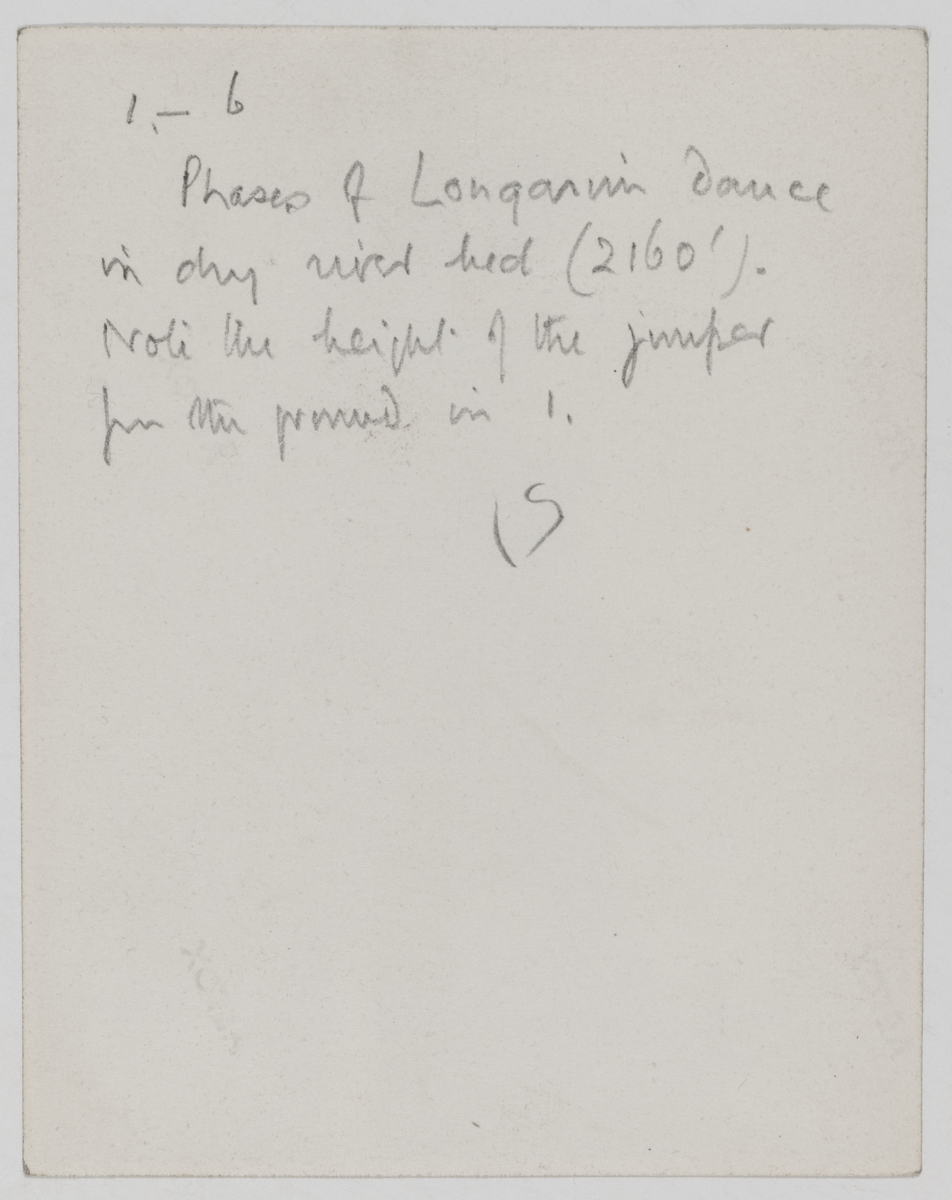 1. – 6
Phases of Longarim Dance
in dry river bed (2160').
Note the height of the jumper
from the ground in 1.